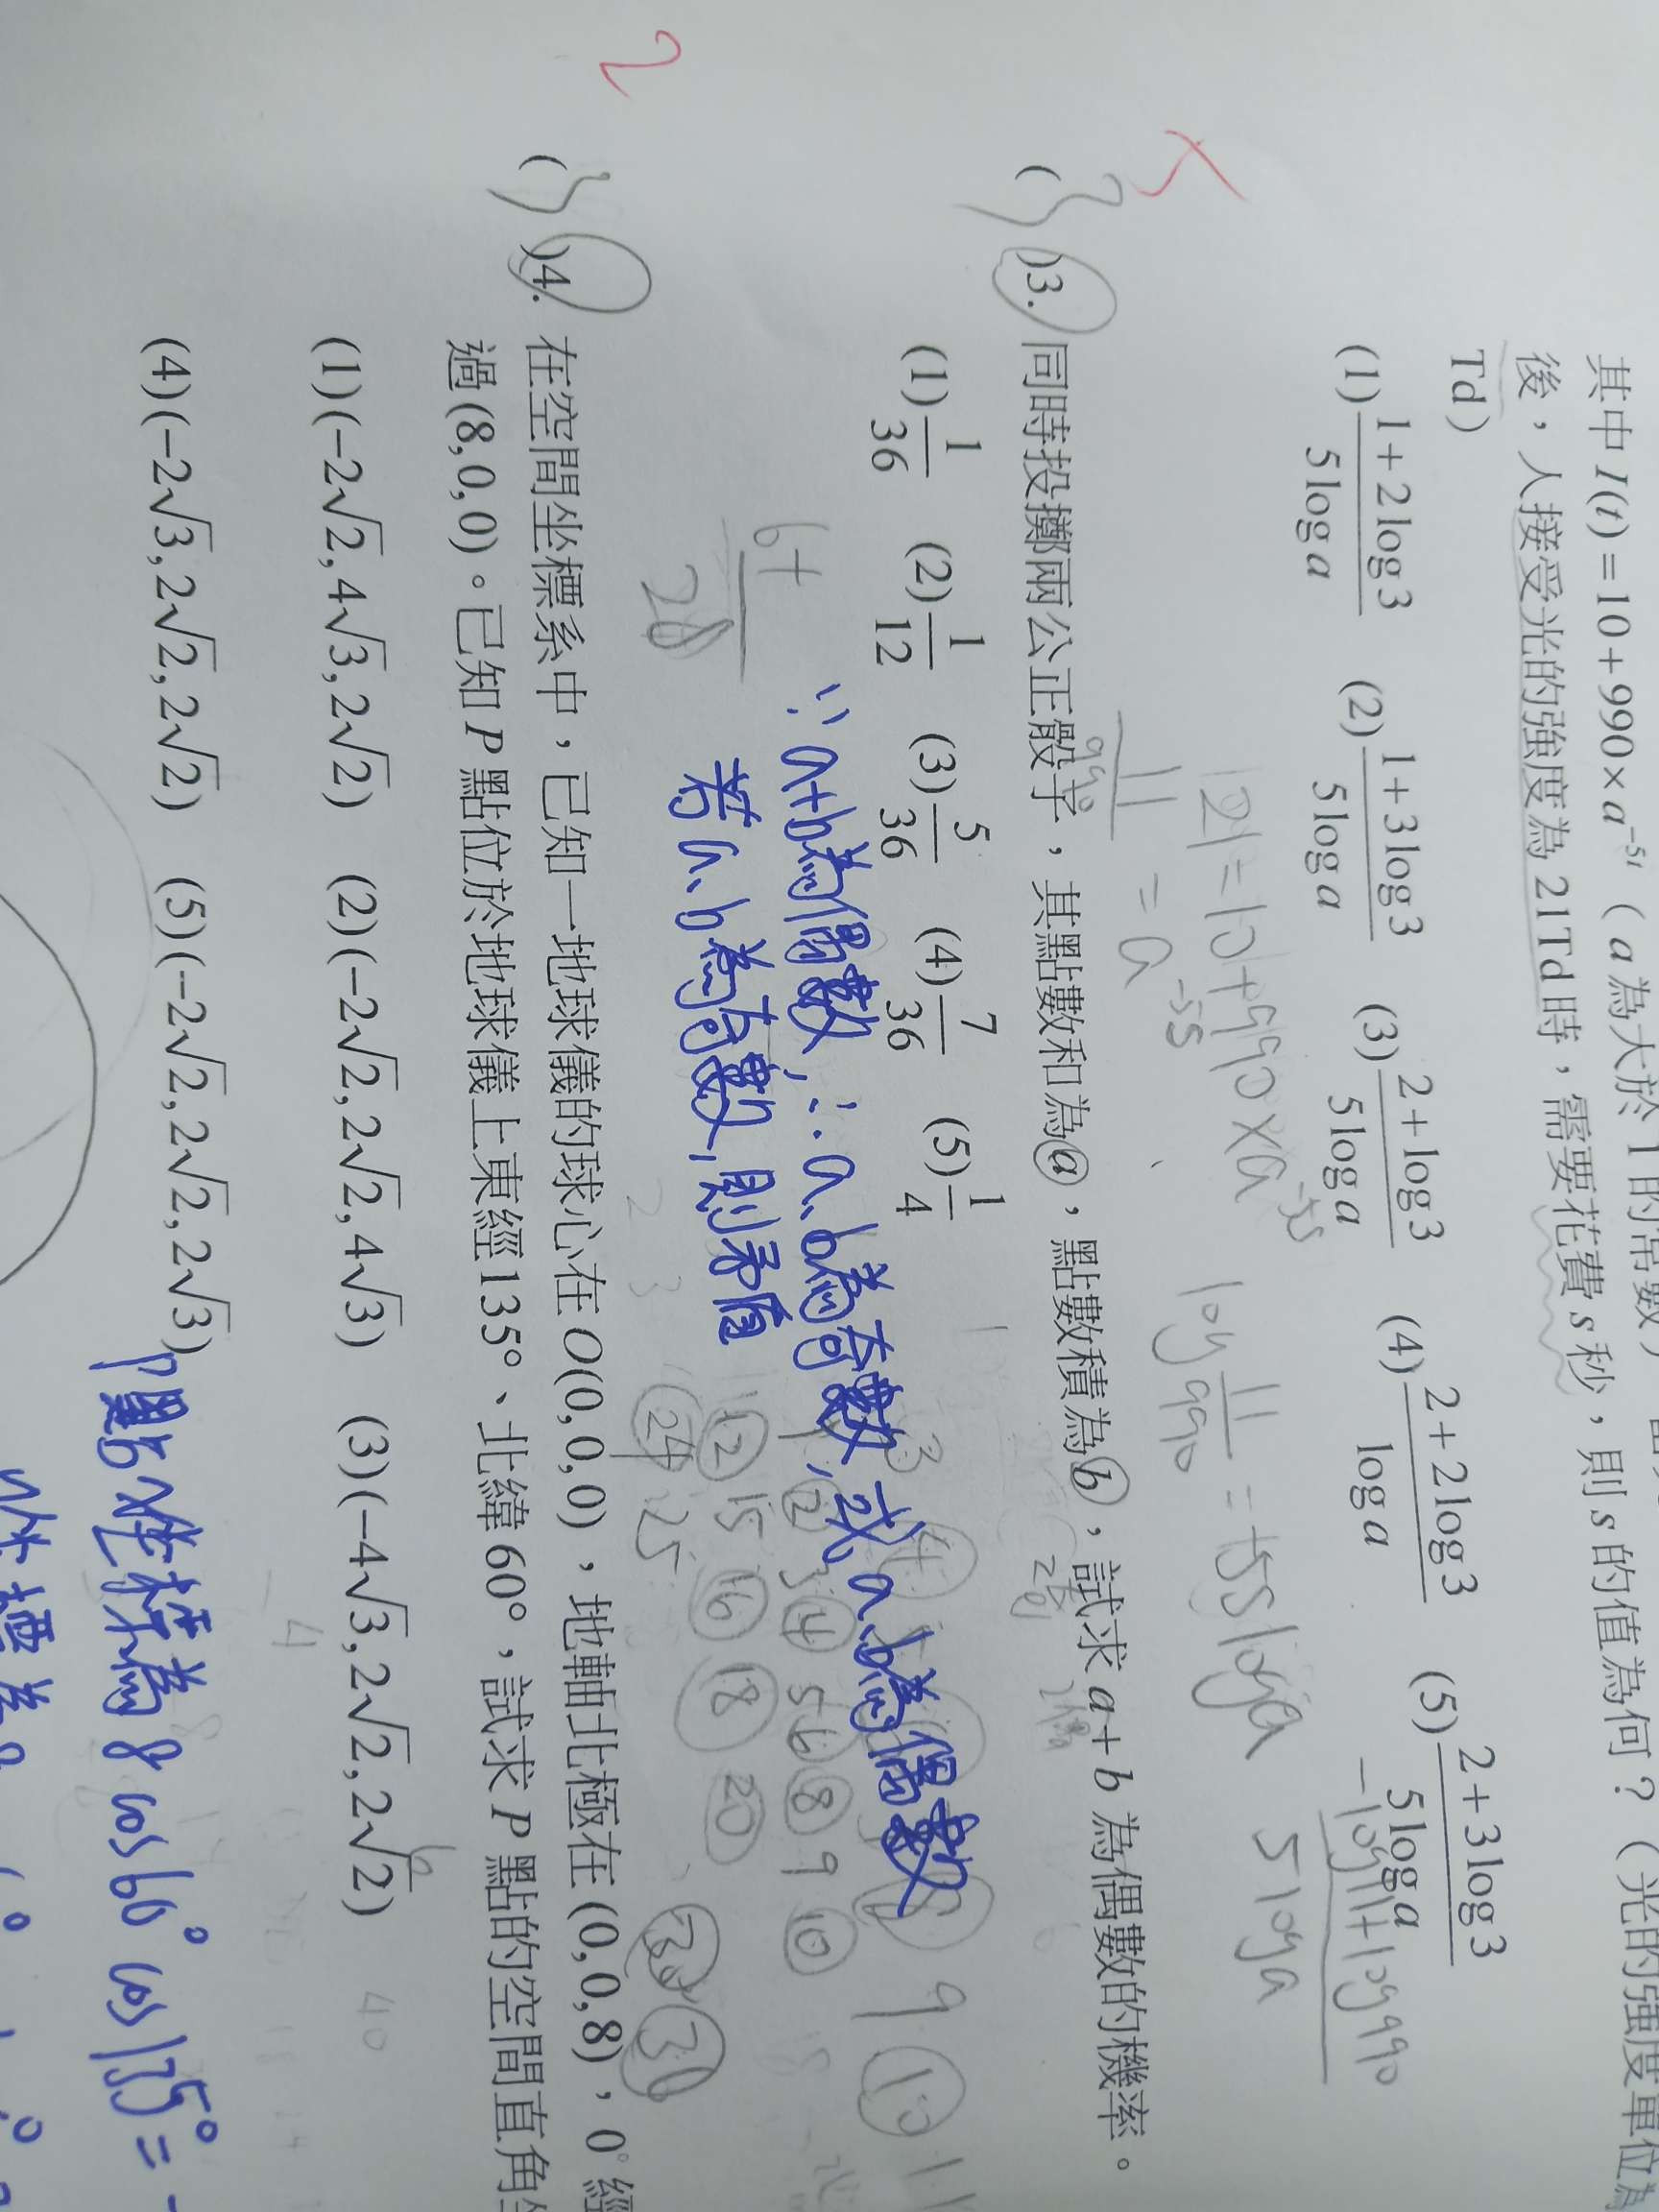 其中 I(t)=10+990×a^{-5t}（a 為大於 1 的常數）
後，人接受光的強度為 21Td 時，需要花費 s 秒，則 s 的值為何？（光的強度單位為
Td）
(1) \frac{1+2log3}{5loga} (2) \frac{1+3log3}{5loga} (3) \frac{2+log3}{5loga} (4) \frac{2+2log3}{loga} (5) \frac{2+3log3}{5loga}
21=10+990×a^{-5s}
\frac{11}{990}=a^{-5s}
log\frac{11}{990}=-5sloga
\frac{-log11+log990}{5loga}
( 3 )3. 同時投擲兩公正骰子，其點數和為 a，點數積為 b，試求 a+b 為偶數的機率。
(1) \frac{1}{36} (2) \frac{1}{12} (3) \frac{5}{36} (4) \frac{7}{36} (5) \frac{1}{4}
∵ a+b為偶數, ∴ a、b為奇數, 或 a、b為偶數
若 a、b為奇數, 則矛盾
1 2 3 4 5 6 8 9 10
12 15 16 18 20
24 25 30
2
( 3 )4. 在空間坐標系中，已知一地球儀的球心在 O(0,0,0)，地軸北極在 (0,0,8)，0°經
過 (8,0,0)。已知 P 點位於地球儀上東經135°、北緯 60°，試求 P 點的空間直角
(1)(−2√2,4√3,2√2) (2)(−2√2,2√2,4√3) (3)(−4√3,2√2,2√2)
(4)(−2√3,2√2,2√2) (5)(−2√2,2√2,2√3)
P點x坐標為 8 cos60° cos135° = -